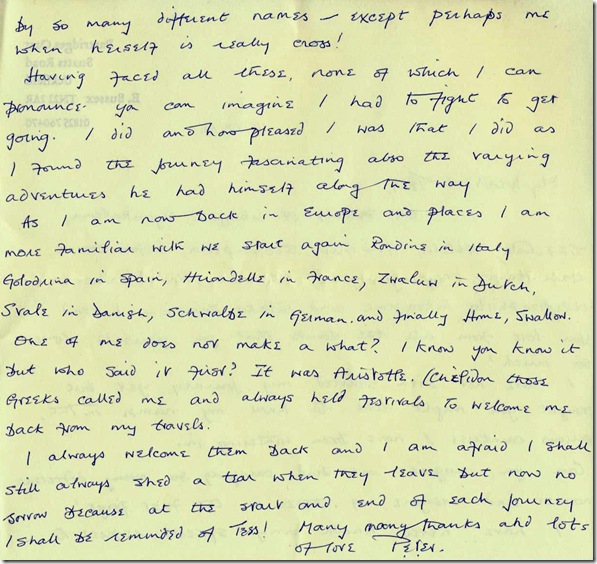 By so many different names – except perhaps me
when herself is really cross!
Having faced all these, none of which I can
pronounce ya can imagine I had to fight to get
going. I did and how pleased I was that I did as
I found the journey fascinating also the varying
adventures he had himself along the way
As I am now back in Europe and places I am
more familiar with we start again Rondine in Italy
Golodrina in Spain, Hirondelle, in France, Zwaluw in Dutch,
Svale in Danish, Schwalbe in German. and finally Home, Swallow.
One of me does not make a what? I know you know it
but who said it first? It was Aristotle. (Chelidon those
Greeks called me and always held festivals to welcome me
back from my travels.
I always welcome them back and I am afraid I shall
still always shed a tear when they leave but now no
sorrow because at the start and end of each journey
I shall be reminded of Tess! Many many thanks and lots
of love Peter.